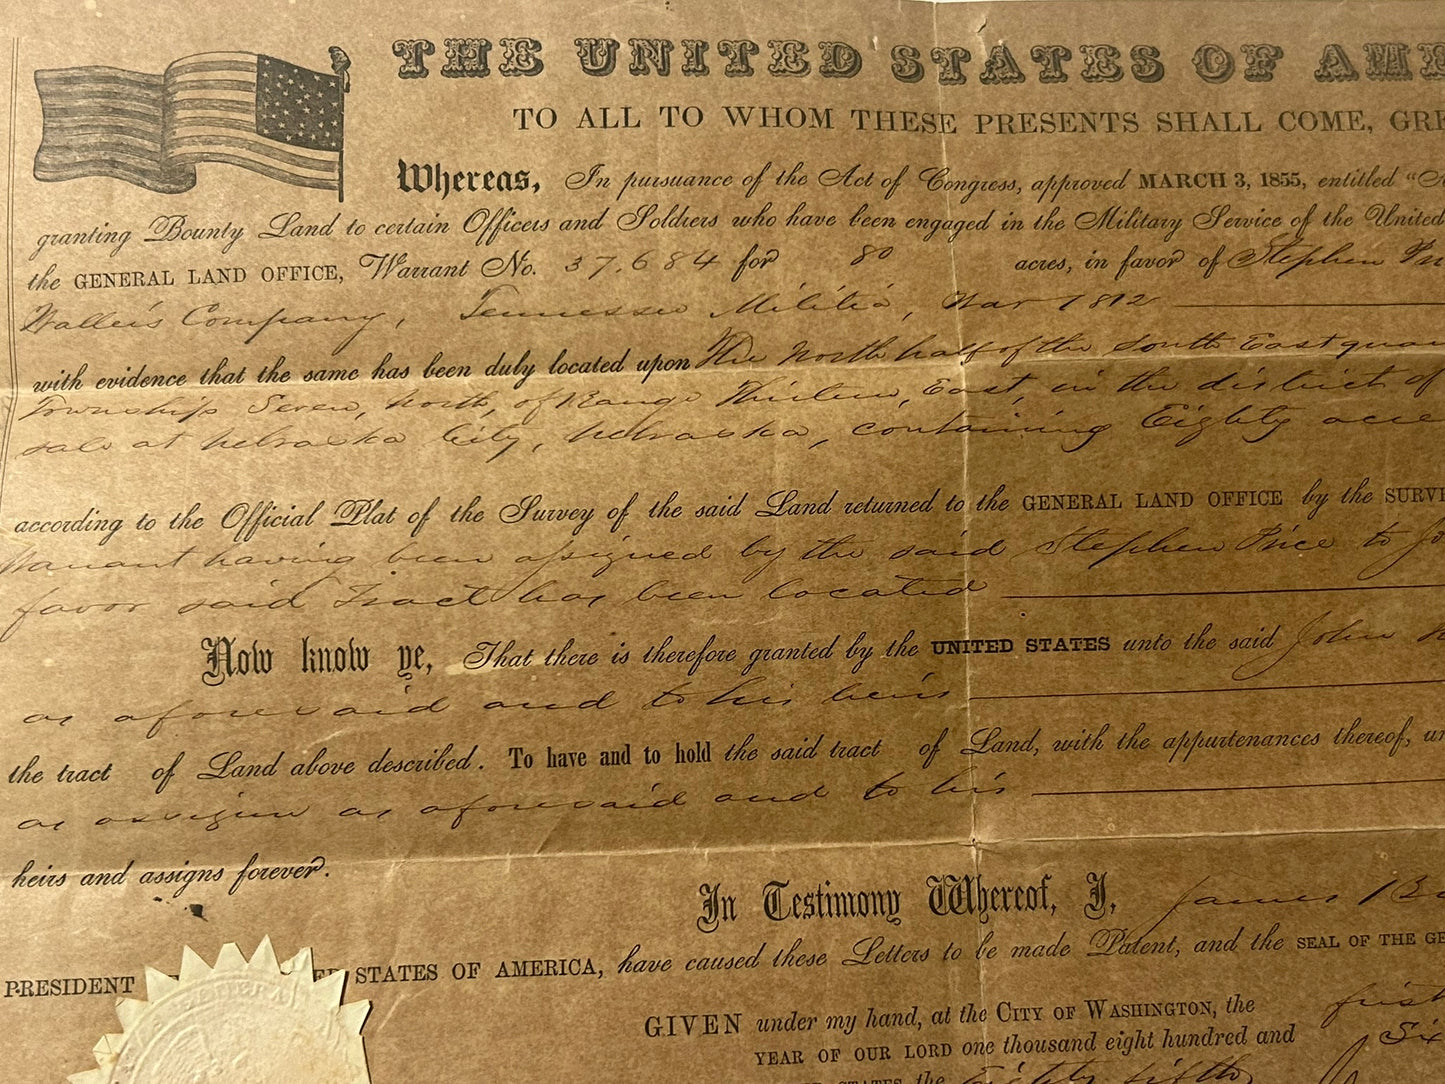 THE UNITED STATES OF AME
TO ALL TO WHOM THESE PRESENTS SHALL COME, GRE
Whereas, In pursuance of the Act of Congress, approved MARCH 3, 1855, entitled "A
granting Bounty Land to certain Officers and Soldiers who have been engaged in the Military Service of the United
the GENERAL LAND OFFICE, Warrant No. 37.684 for 80 acres, in favor of Stephen
Company, Tennessee Militia, War 1812
with evidence that the same has been duly located upon The North half of the South East quar
Township Seven, North, of Range Thirteen, East, in the district of
sale at Nebraska City, Nebraska, containing Eighty acre
according to the Official Plat of the Survey of the said Land returned to the GENERAL LAND OFFICE by the SURVE
Warrant having been assigned by the said Stephen Price to Jo
favor said Tract has been located
Now know ye, That there is therefore granted by the UNITED STATES unto the said John
as aforesaid and to his heirs
the tract of Land above described. To have and to hold the said tract of Land, with the appurtenances thereof, un
as assignee as aforesaid and to his
heirs and assigns forever.
In Testimony Whereof, I, James B
PRESIDENT ED STATES OF AMERICA, have caused these Letters to be made Patent, and the SEAL OF THE GE
GIVEN under my hand, at the CITY OF WASHINGTON, the first
YEAR OF OUR LORD one thousand eight hundred and Six
STATES the Eighty fifth